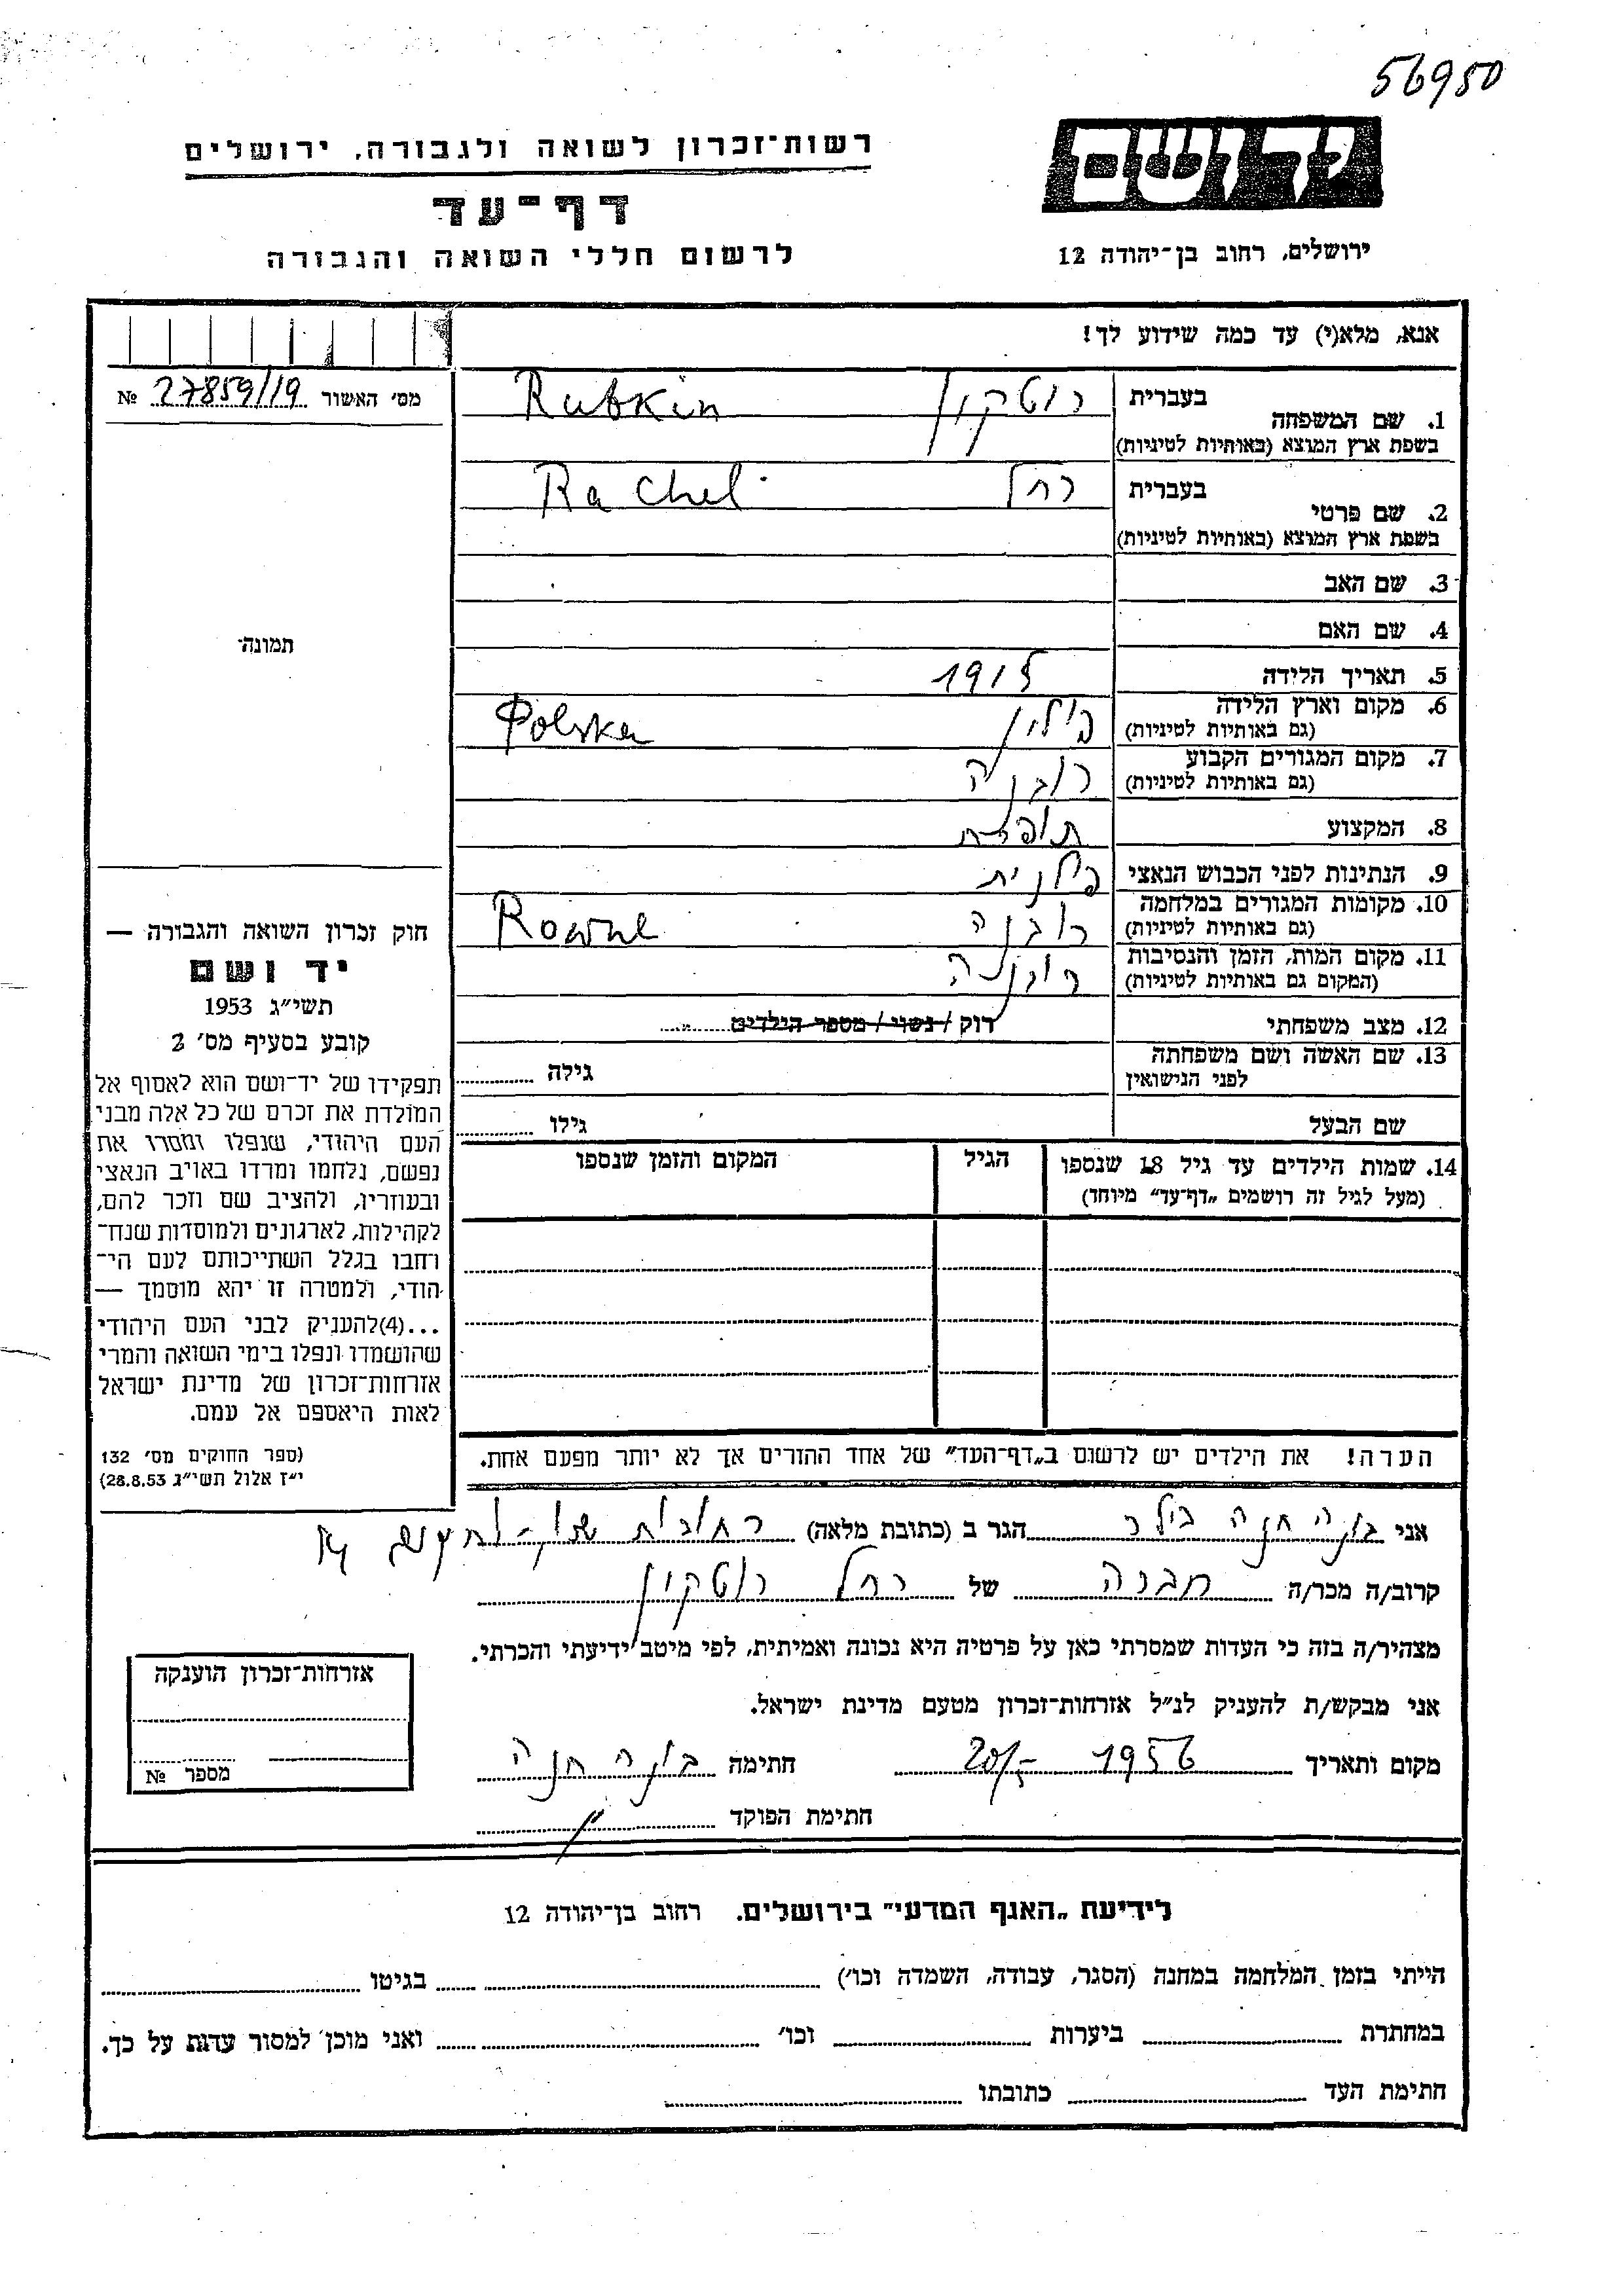 56950
יד ושם
רשות־זכרון לשואה ולגבורה, ירושלים
דף־עד
לרשום חללי השואה והגבורה
ירושלים, רחוב בן־יהודה 12
אנא, מלא(י) עד כמה שידוע לך!
מס׳ האשור 27859/19 №
תמונה
1. שם המשפחה
בעברית רוטקין Rutkin
בשפת ארץ המוצא (באותיות לטיניות)
2. שם פרטי
בעברית רחל Rachel
בשפת ארץ המוצא (באותיות לטיניות)
3. שם האב
4. שם האם
5. תאריך הלידה 1915
6. מקום וארץ הלידה פולין Polska
(גם באותיות לטיניות)
7. מקום המגורים הקבוע רובנה
(גם באותיות לטיניות)
8. המקצוע תופרת
9. הנתינות לפני הכבוש הנאצי פולנית
10. מקומות המגורים במלחמה רובנה Rowne
(גם באותיות לטיניות)
11. מקום המות, הזמן והנסיבות רובנה
(המקום גם באותיות לטיניות)
12. מצב משפחתי רוק / נשוי / מספר הילדים
13. שם האשה ושם משפחתה גילה
לפני הנישואין
שם הבעל גילו
14. שמות הילדים עד גיל 18 שנספו הגיל המקום והזמן שנספו
(מעל לגיל זה רושמים „דף־עד״ מיוחד)
הערה! את הילדים יש לרשום ב„דף־העד״ של אחד ההורים אך לא יותר מפעם אחת.
חוק זכרון השואה והגבורה —
יד ושם
תשי״ג 1953
קובע בסעיף מס׳ 2
תפקידו של יד־ושם הוא לאסוף אל
המולדת את זכרם של כל אלה מבני
העם היהודי, שנפלו ומסרו את
נפשם, נלחמו ומרדו באויב הנאצי
ובעוזריו, ולהציב שם וזכר להם,
לקהילות, לארגונים ולמוסדות שנח־
רחבו בגלל השתייכותם לעם הי־
הודי, ולמטרה זו יהא מוסמך —
...(4)להעניק לבני העם היהודי
שהושמדו ונפלו בימי השואה והמרי
אזרחות־זכרון של מדינת ישראל
לאות היאספם אל עמם.
(ספר החוקים מס׳ 132
י״ז אלול תשי״ג 28.8.53)
אני חנה הגר ב (כתובת מלאה) רחובות 14
קרוב/ה מכר/ה חברה של רחל רוטקין
מצהיר/ה בזה כי העדות שמסרתי כאן על פרטיה היא נכונה ואמיתית, לפי מיטב ידיעתי והכרתי.
אני מבקש/ת להעניק לנ״ל אזרחות־זכרון מטעם מדינת ישראל.
מקום ותאריך 1956 חתימה חנה
חתימת הפוקד
אזרחות־זכרון הוענקה
מספר №
לידיעת „האגף המדעי״ בירושלים. רחוב בן־יהודה 12
הייתי בזמן המלחמה במחנה (הסגר, עבודה, השמדה וכו׳) בגיטו
במחתרת ביערות וכו׳ ואני מוכן למסור עדות על כך.
חתימת העד כתובתו